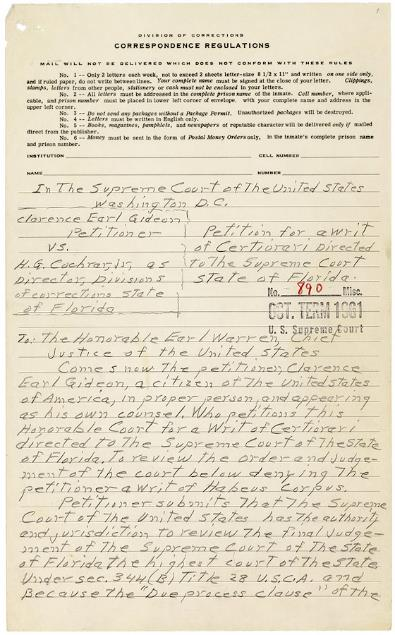 DIVISION OF CORRECTIONS
CORRESPONDENCE REGULATIONS
MAIL WILL NOT BE DELIVERED WHICH DOES NOT CONFORM WITH THESE RULES
No. 1 -- Only 2 letters each week, not to exceed 2 sheets letter-size 8 1/2 x 11" and written on one side only,
and if ruled paper, do not write between lines. Your complete name must be signed at the close of your letter. Clippings,
stamps, letters from other people, stationery or cash must not be enclosed in your letters.
No. 2 -- All letters must be addressed in the complete prison name of the inmate. Cell number, where appli-
cable, and prison number must be placed in lower left corner of envelope, with your complete name and address in the
upper left corner.
No. 3 -- Do not send any packages without a Package Permit. Unauthorized packages will be destroyed.
No. 4 -- Letters must be written in English only.
No. 5 -- Books, magazines, pamphlets, and newspapers of reputable character will be delivered only if mailed
direct from the publisher.
No. 6 -- Money must be sent in the form of Postal Money Orders only, in the inmate's complete prison name
and prison number.
INSTITUTION CELL NUMBER
NAME NUMBER
In The Supreme Court of The United States
Washington D.C.
Clarence Earl Gideon
Petitioner
vs.
H.G. Cochran, Jr, as
Director, Divisions
of corrections State
of Florida
Petition for a Writ
of Certiorari Directed
to The Supreme Court
State of Florida.
No. 890 Misc.
OCT. TERM 1961
U. S. Supreme Court
To: The Honorable Earl Warren, Chief
Justice of the United States
Comes now The petitioner, Clarence
Earl Gideon, a citizen of The United states
of America, in proper person, and appearing
as his own counsel. Who petitions this
Honorable Court for a Writ of Certiorari
directed to The Supreme Court of The State
of Florida, To review the order and Judge-
ment of the court below denying The
petitioner a writ of Habeus Corpus.
Petitioner submits That The Supreme
Court of The United States has The authority
and jurisdiction to review the final Judge-
ment of The Supreme Court of The State
of Florida the highest court of The State
Under sec. 344(B) Title 28 U.S.C.A. and
Because the "Due process clause" of the